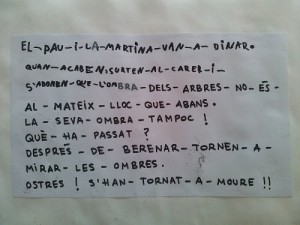 EL-PAU-I-LA-MARTINA-VAN-A-DINAR.
QUAN-ACABEN,SURTEN-AL-CARER-I-
S'ADONEN-QUE-L'OMBRA-DELS-ARBRES-NO-ÉS
AL-MATEIX-LLOC-QUE-ABANS.
LA-SEVA-OMBRA-TAMPOC!
QUÈ-HA-PASSAT?
DESPRÉS-DE-BERENAR-TORNEN-A-
MIRAR-LES-OMBRES.
OSTRES! S'HAN-TORNAT-A-MOURE!!